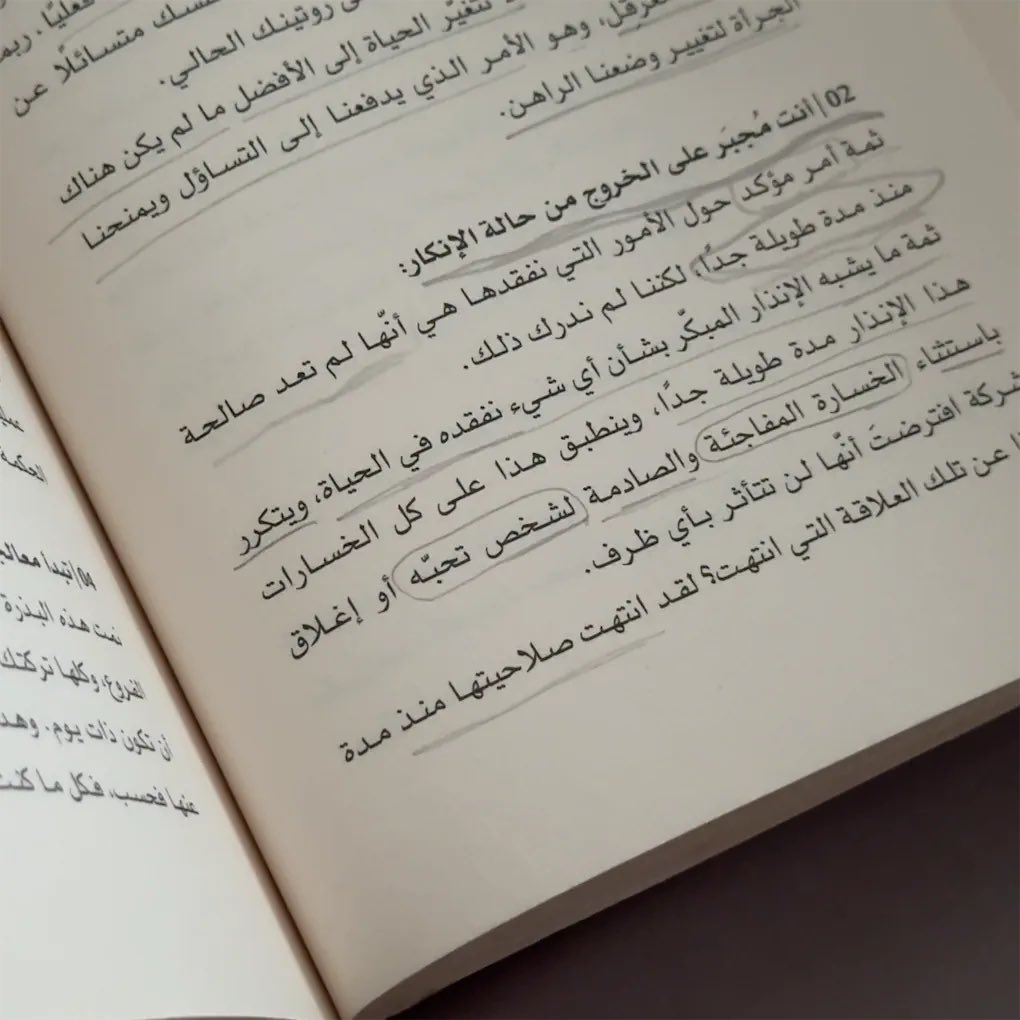 فعليًا. ربما
نفسك متسائلًا عن
روتينك الحالي.
لا تتغيّر الحياة إلى الأفضل ما لم يكن هناك
وهو الأمر الذي يدفعنا إلى التساؤل ويمنحنا
الجرأة لتغيير وضعنا الراهن.
02| أنت مُجبَر على الخروج من حالة الإنكار:
ثمة أمر مؤكد حول الأمور التي نفقدها هي أنّها لم تعد صالحة
منذ مدة طويلة جدًا، لكننا لم ندرك ذلك.
ثمة ما يشبه الإنذار المبكّر بشأن أي شيء نفقده في الحياة، ويتكرر
هذا الإنذار مدة طويلة جدًا، وينطبق هذا على كل الخسارات
باستثناء الخسارة المفاجئة والصادمة لشخص تحبّه أو إغلاق
شركة افترضتَ أنّها لن تتأثر بأي ظرف.
عن تلك العلاقة التي انتهت؟ لقد انتهت صلاحيتها منذ مدة
الحكمة
04| تبدأ معالج
نمت هذه البذرة
الفروع، وكلها تركتك
أن تكون ذات يوم. وهد
عنها فحسب، فكل ما كنت